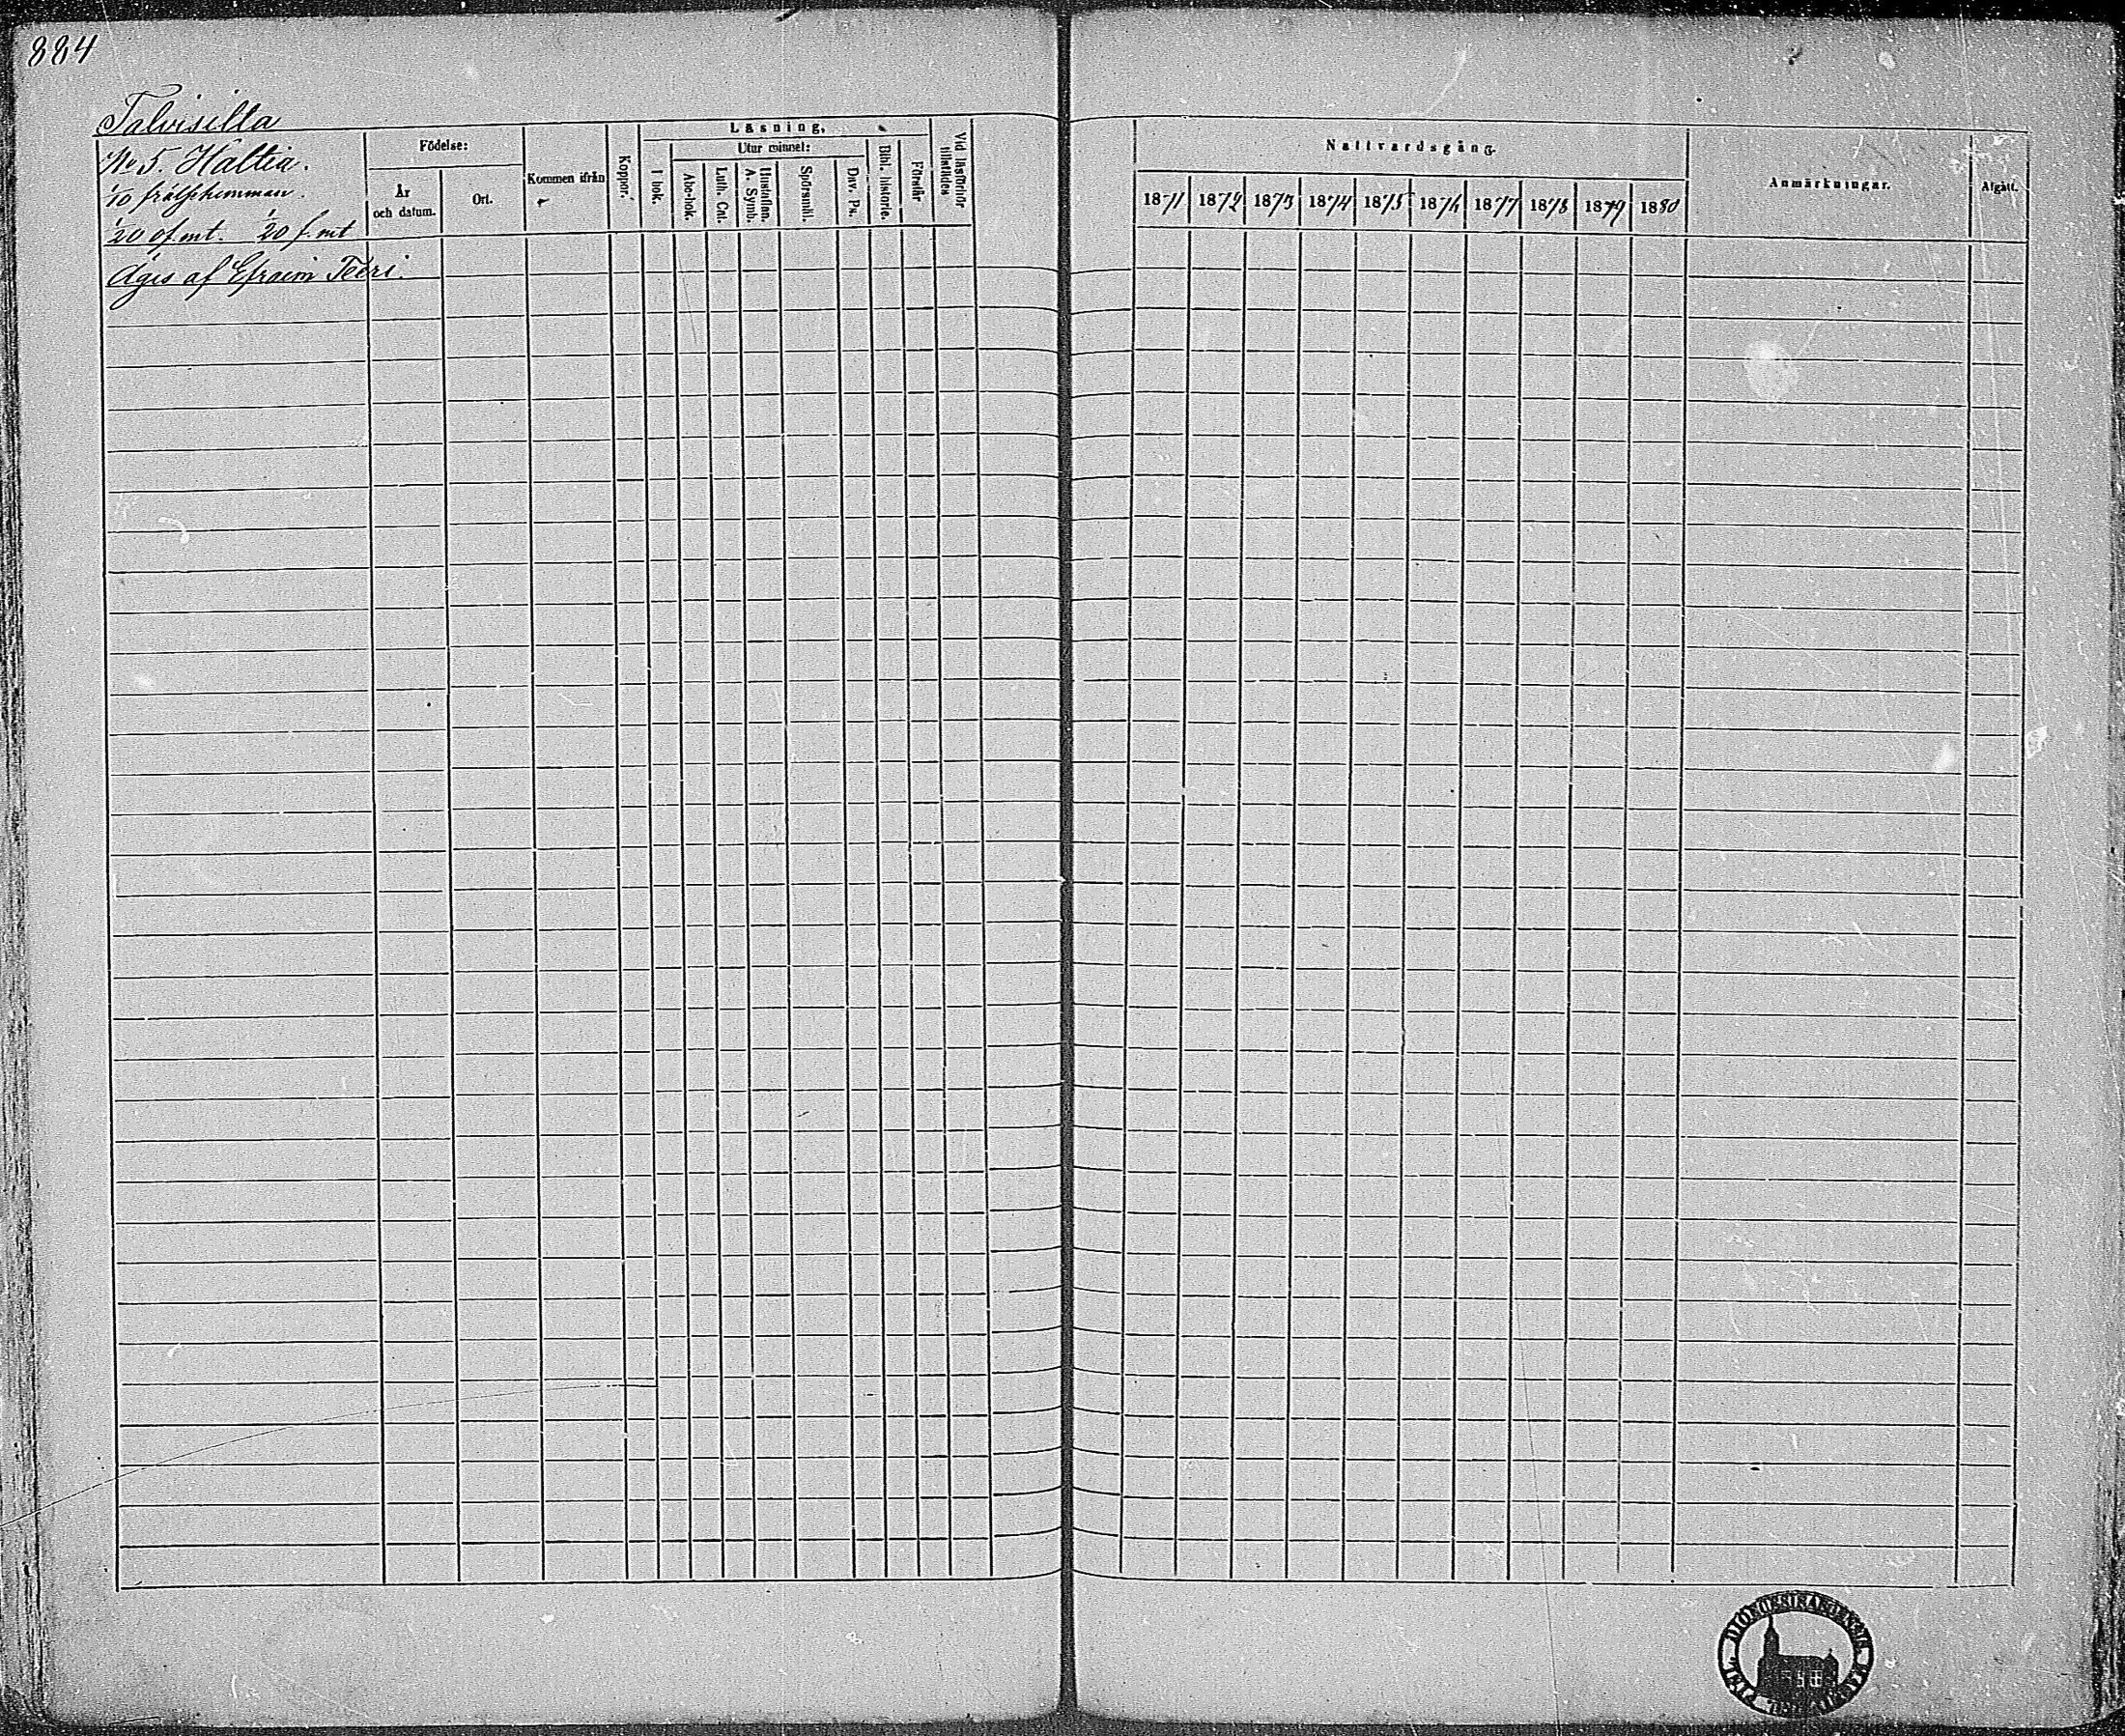 884
Talvisilta
No 5. Haltia.
1/10 frälsehemman.
1/20 of.mt. 1/20 f.mt
Äges af Efraim Teeri.
Födelse:
År
och datum.
Ort.
Kommen ifrån
Koppor.
Läsning.
I bok.
Utur minnet:
Abc-bok.
Luth. Cat.
Hustaflan.
A. Symb.
Spörsmål.
Dav. Ps.
Bibl. historie.
Förstår
Vid läsförhör
tillstädes
Nattvardsgång.
1871 1872 1873 1874 1875 1876 1877 1878 1879 1880
Anmärkningar.
Afgått.